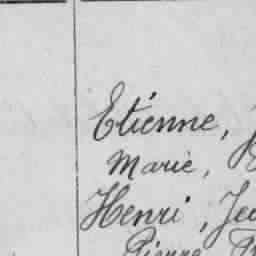 Etienne,
Marie,
Henri, Je
Pierre